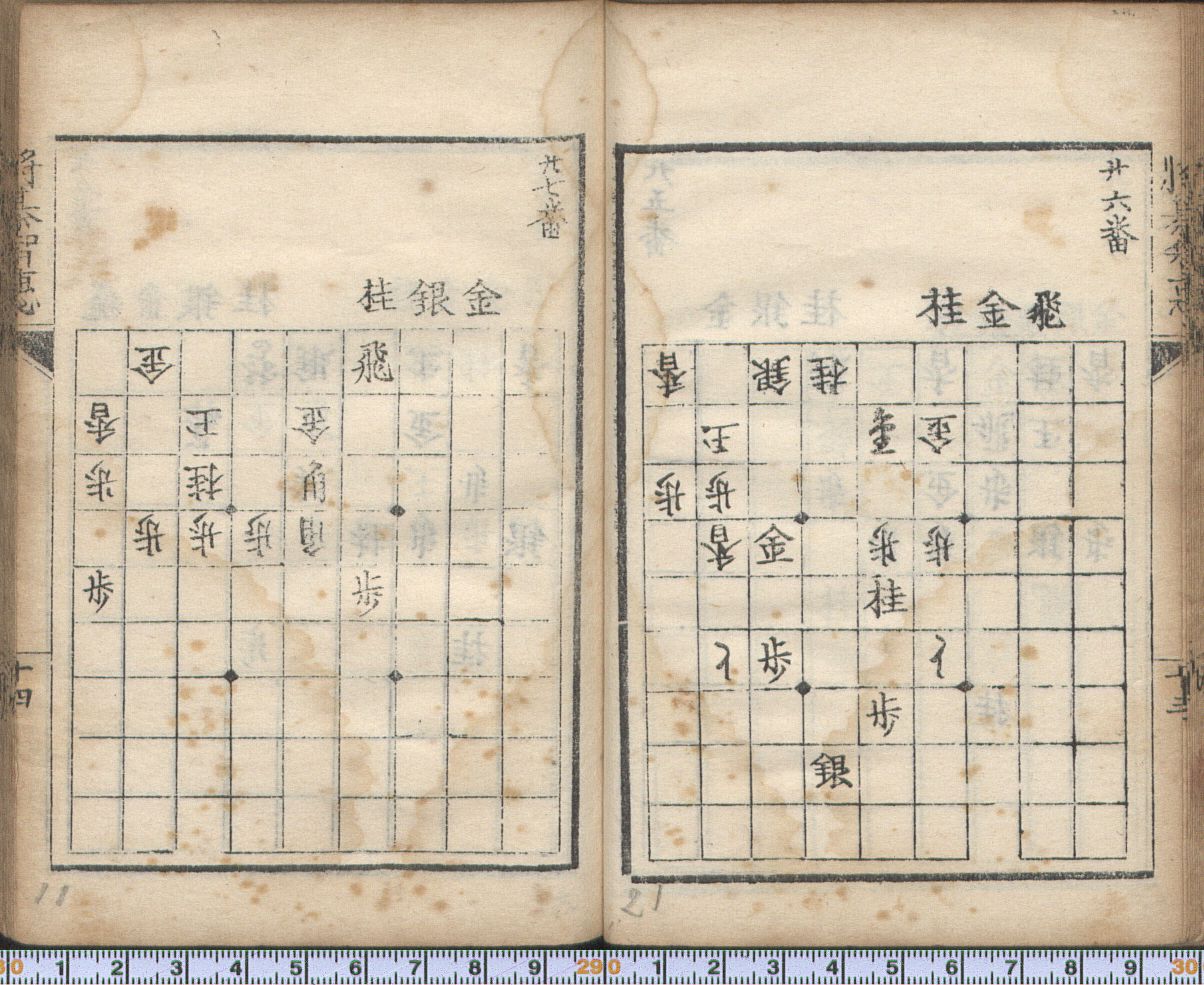 廿六番
飛金桂
香 銀 桂
王 金
歩 歩
香 金 歩 歩
桂
歩
歩
銀
十三
21
廿七番
金銀桂
金 飛
香 王 金
歩 桂 角
歩 歩 歩 角
歩 歩
十四
11
30 1 2 3 4 5 6 7 8 9 29 0 1 2 3 4 5 6 7 8 9 30